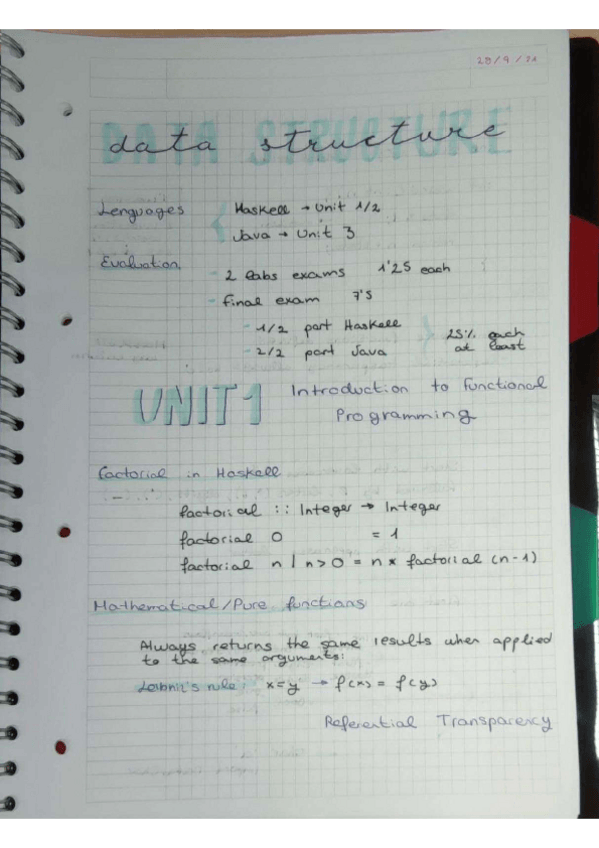 28/9/21
data structure
DATA STRUCTURE
Lenguages { Haskell → Unit 1/2
Java → Unit 3
Evaluation - 2 labs exams 1'25 each
- final exam 7'5
- 1/2 part Haskell { 25% each
- 2/2 part Java at least
UNIT 1 Introduction to Functional
Programming
factorial in Haskell
factorial :: Integer → Integer
factorial 0 = 1
factorial n | n>0 = n * factorial (n-1)
Mathematical/Pure functions
Always returns the same results when applied
to the same arguments:
Leibniz's rule x=y → f(x) = f(y)
Referential Transparency